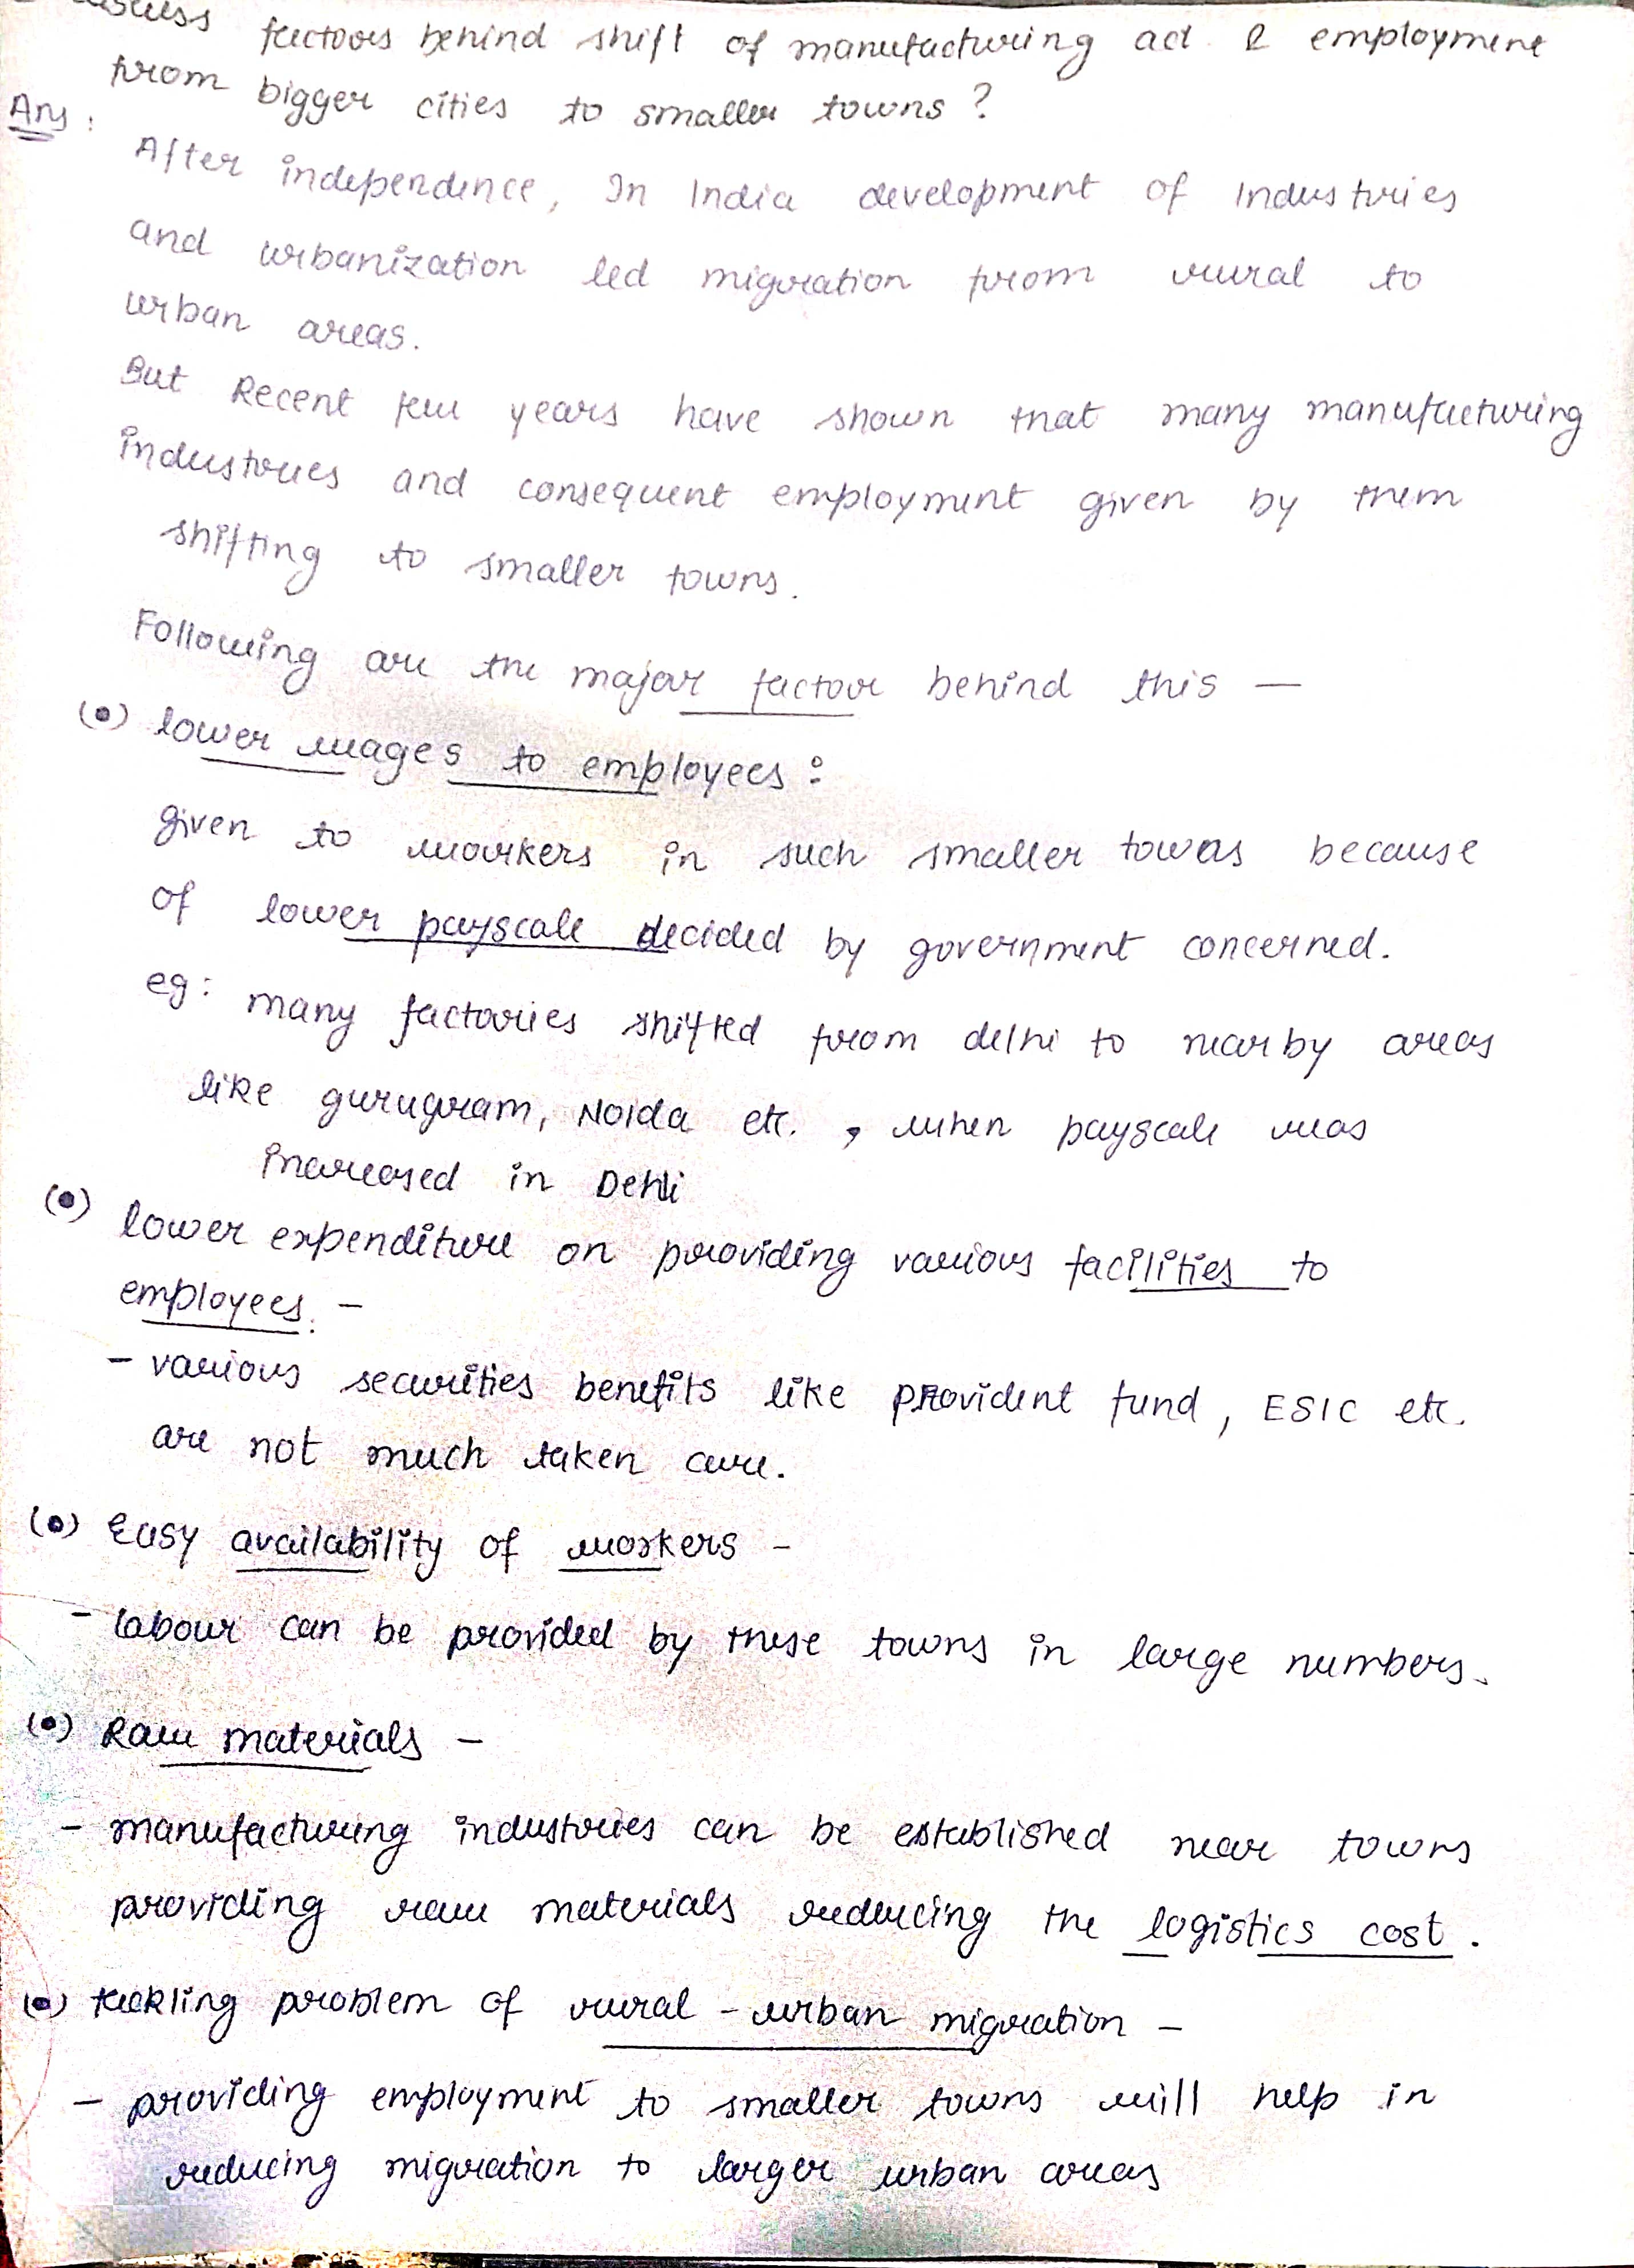 factors behind shift of manufacturing act & employment
from bigger cities to smaller towns ?
Ans :
After independence, In India development of Industries
and urbanization led migration from rural to
urban areas.
But Recent few years have shown that many manufacturing
industries and consequent employment given by them
shifting to smaller towns.
Following are the major factor behind this —
(•) lower wages to employees :
given to workers in such smaller towns because
of lower payscale decided by government concerned.
eg : many factories shifted from delhi to nearby areas
like gurugram, Noida etc. , when payscale was
increased in Dehli
(•) lower expenditure on providing various facilities to
employees. –
– various securities benefits like Provident fund, ESIC etc.
are not much taken care.
(•) Easy availability of workers –
– labour can be provided by these towns in large numbers.
(•) Raw materials –
– manufacturing industries can be established near towns
providing raw materials reducing the logistics cost .
(•) tackling problem of rural - urban migration –
– providing employment to smaller towns will help in
reducing migration to larger urban areas